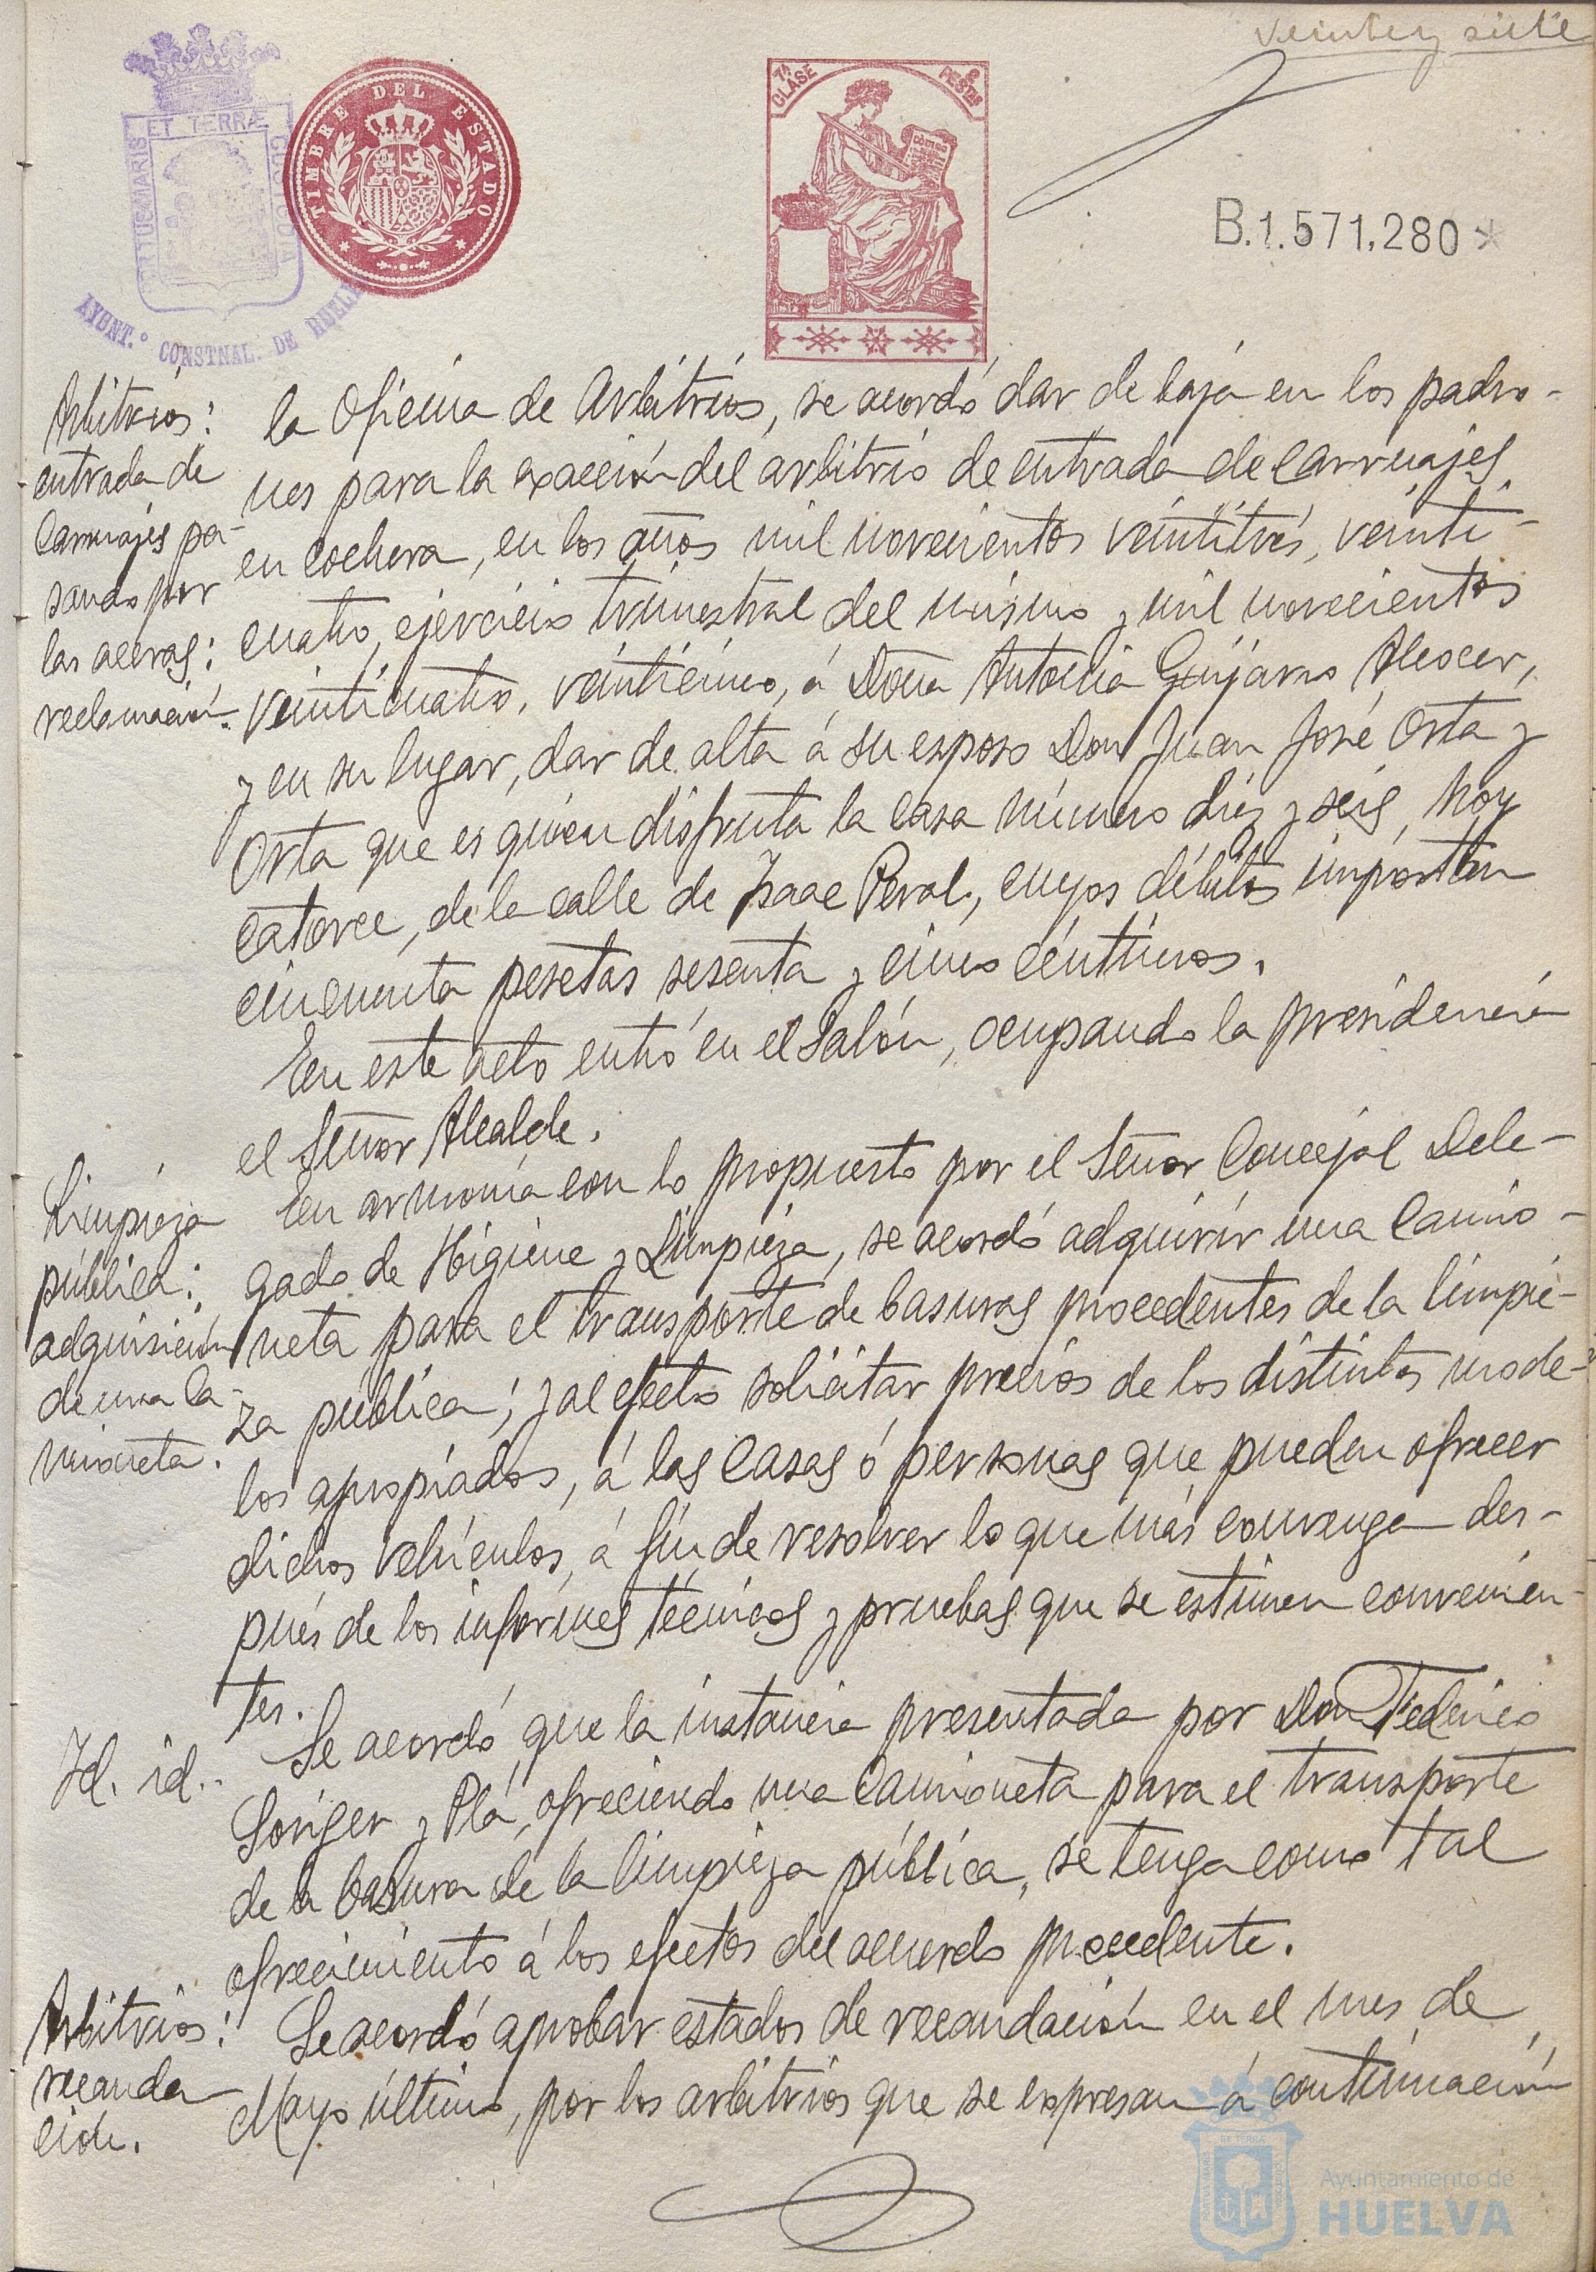 veinte y siete
PORTUS MARIS ET TERRÆ CUSTODIA
AYUNT.º CONSTNAL. DE HUELVA
TIMBRE DEL ESTADO
7ª CLASE
PESTAS
B.1.571.280*
Arbitrios:
entrada de
Carruajes pa-
sando por
las aceras:
reclamación.
la Oficina de Arbitrios, se acordó dar de baja en los padro-
nes para la exacción del arbitrio de entrada de Carruajes
en Cochera, en los años mil novecientos veintitrés, veinti-
cuatro, ejercicio trimestral del mismo y mil novecientos
veinticuatro, veinticinco, á Doña Antonia Guijarro Alcocer,
y en su lugar, dar de alta á su esposo Don Juan José Orta y
Orta que es quien disfruta la casa número diez y seis, hoy
catorce, de la calle de Isaac Peral, cuyos débitos importan
cincuenta pesetas sesenta y cinco céntimos.
En este acto entró en el Salón, ocupando la presidencia
el Señor Alcalde.
Limpieza
pública:
adquisición
de una ca-
mioneta.
En armonía con lo propuesto por el Señor Concejal Dele-
gado de Higiene y Limpieza, se acordó adquirir una Camio-
neta para el transporte de basuras procedentes de la limpie-
za pública; y al efecto solicitar precios de los distintos mode-
los apropiados, á las Casas ó personas que pueden ofrecer
dichos vehículos, á fin de resolver lo que más convenga des-
pués de los informes técnicos y pruebas que se estimen convenien-
tes.
Id. id..
Se acordó que la instancia presentada por Don Federico
Soriger y Plá, ofreciendo una Camioneta para el transporte
de la basura de la limpieza pública, se tenga como tal
ofrecimiento á los efectos del acuerdo precedente.
Arbitrios:
recauda
ción.
Se acordó aprobar estados de recaudación en el mes de
Mayo último, por los arbitrios que se expresan á continuación
Ayuntamiento de
HUELVA